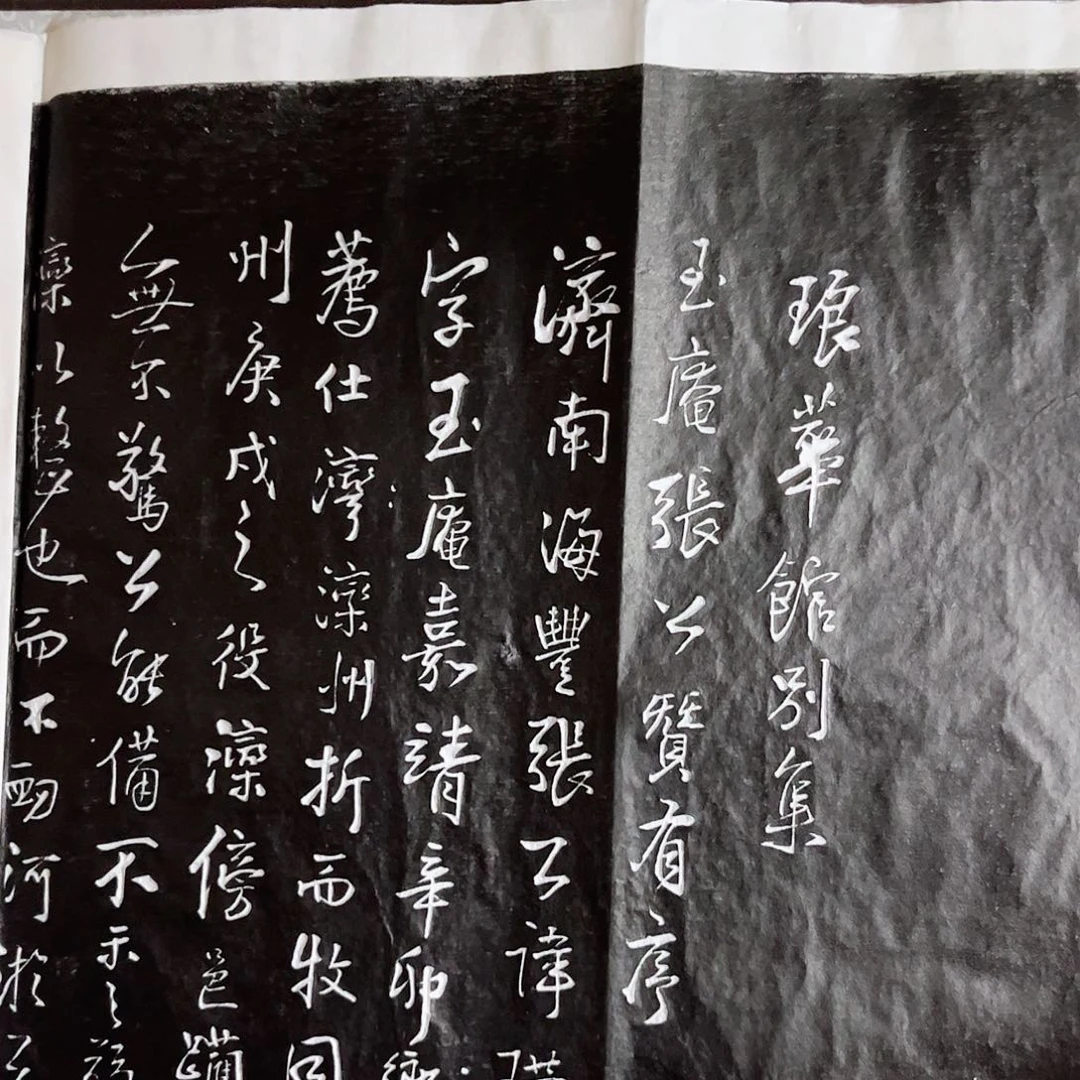 琅華館別集
玉庵張公贊有序
濟南海豐張公諱
字玉庵嘉靖辛卯鄉
薦仕灣灤州折而牧同
州庚戌之役灤傍邑躪
人無不驚公能備不示之
灤以整也而不